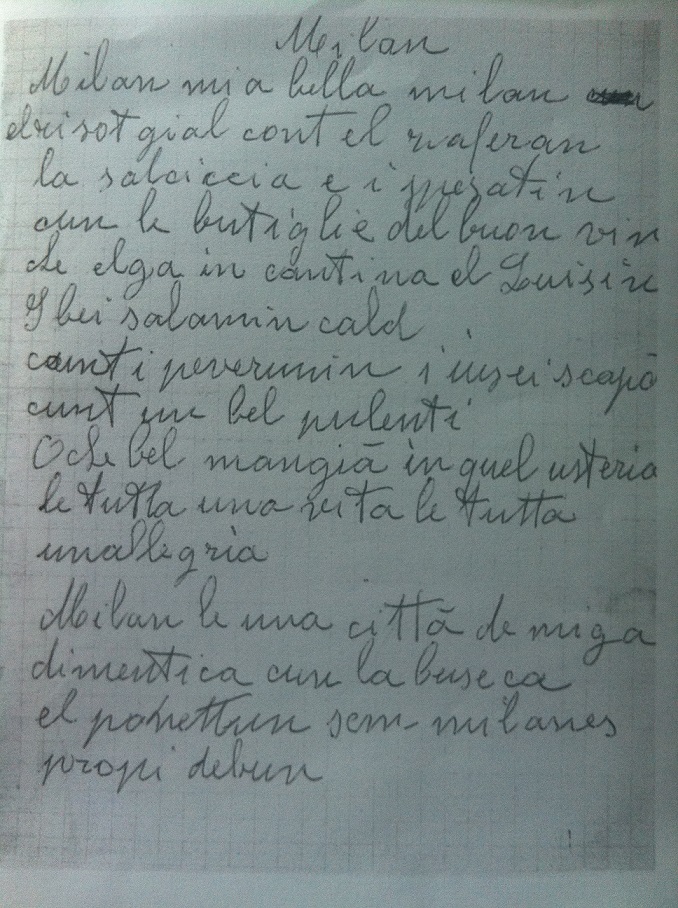 Milan
Milan mia bella milan
elrisot gial cont el zaferan
la salciccia e i pezatin
cun le butiglie del buon vin
che elga in cantina el Luisin
I bei salamin cald
cunt i peverunin i üsei scapà
cunt un bel pulenti
O che bel mangiā in quel usteria
le tutta una vita le tutta
unallegria
Milan le una cittā de miga
dimentica cun la buseca
el panettun sem milanes
propi debun